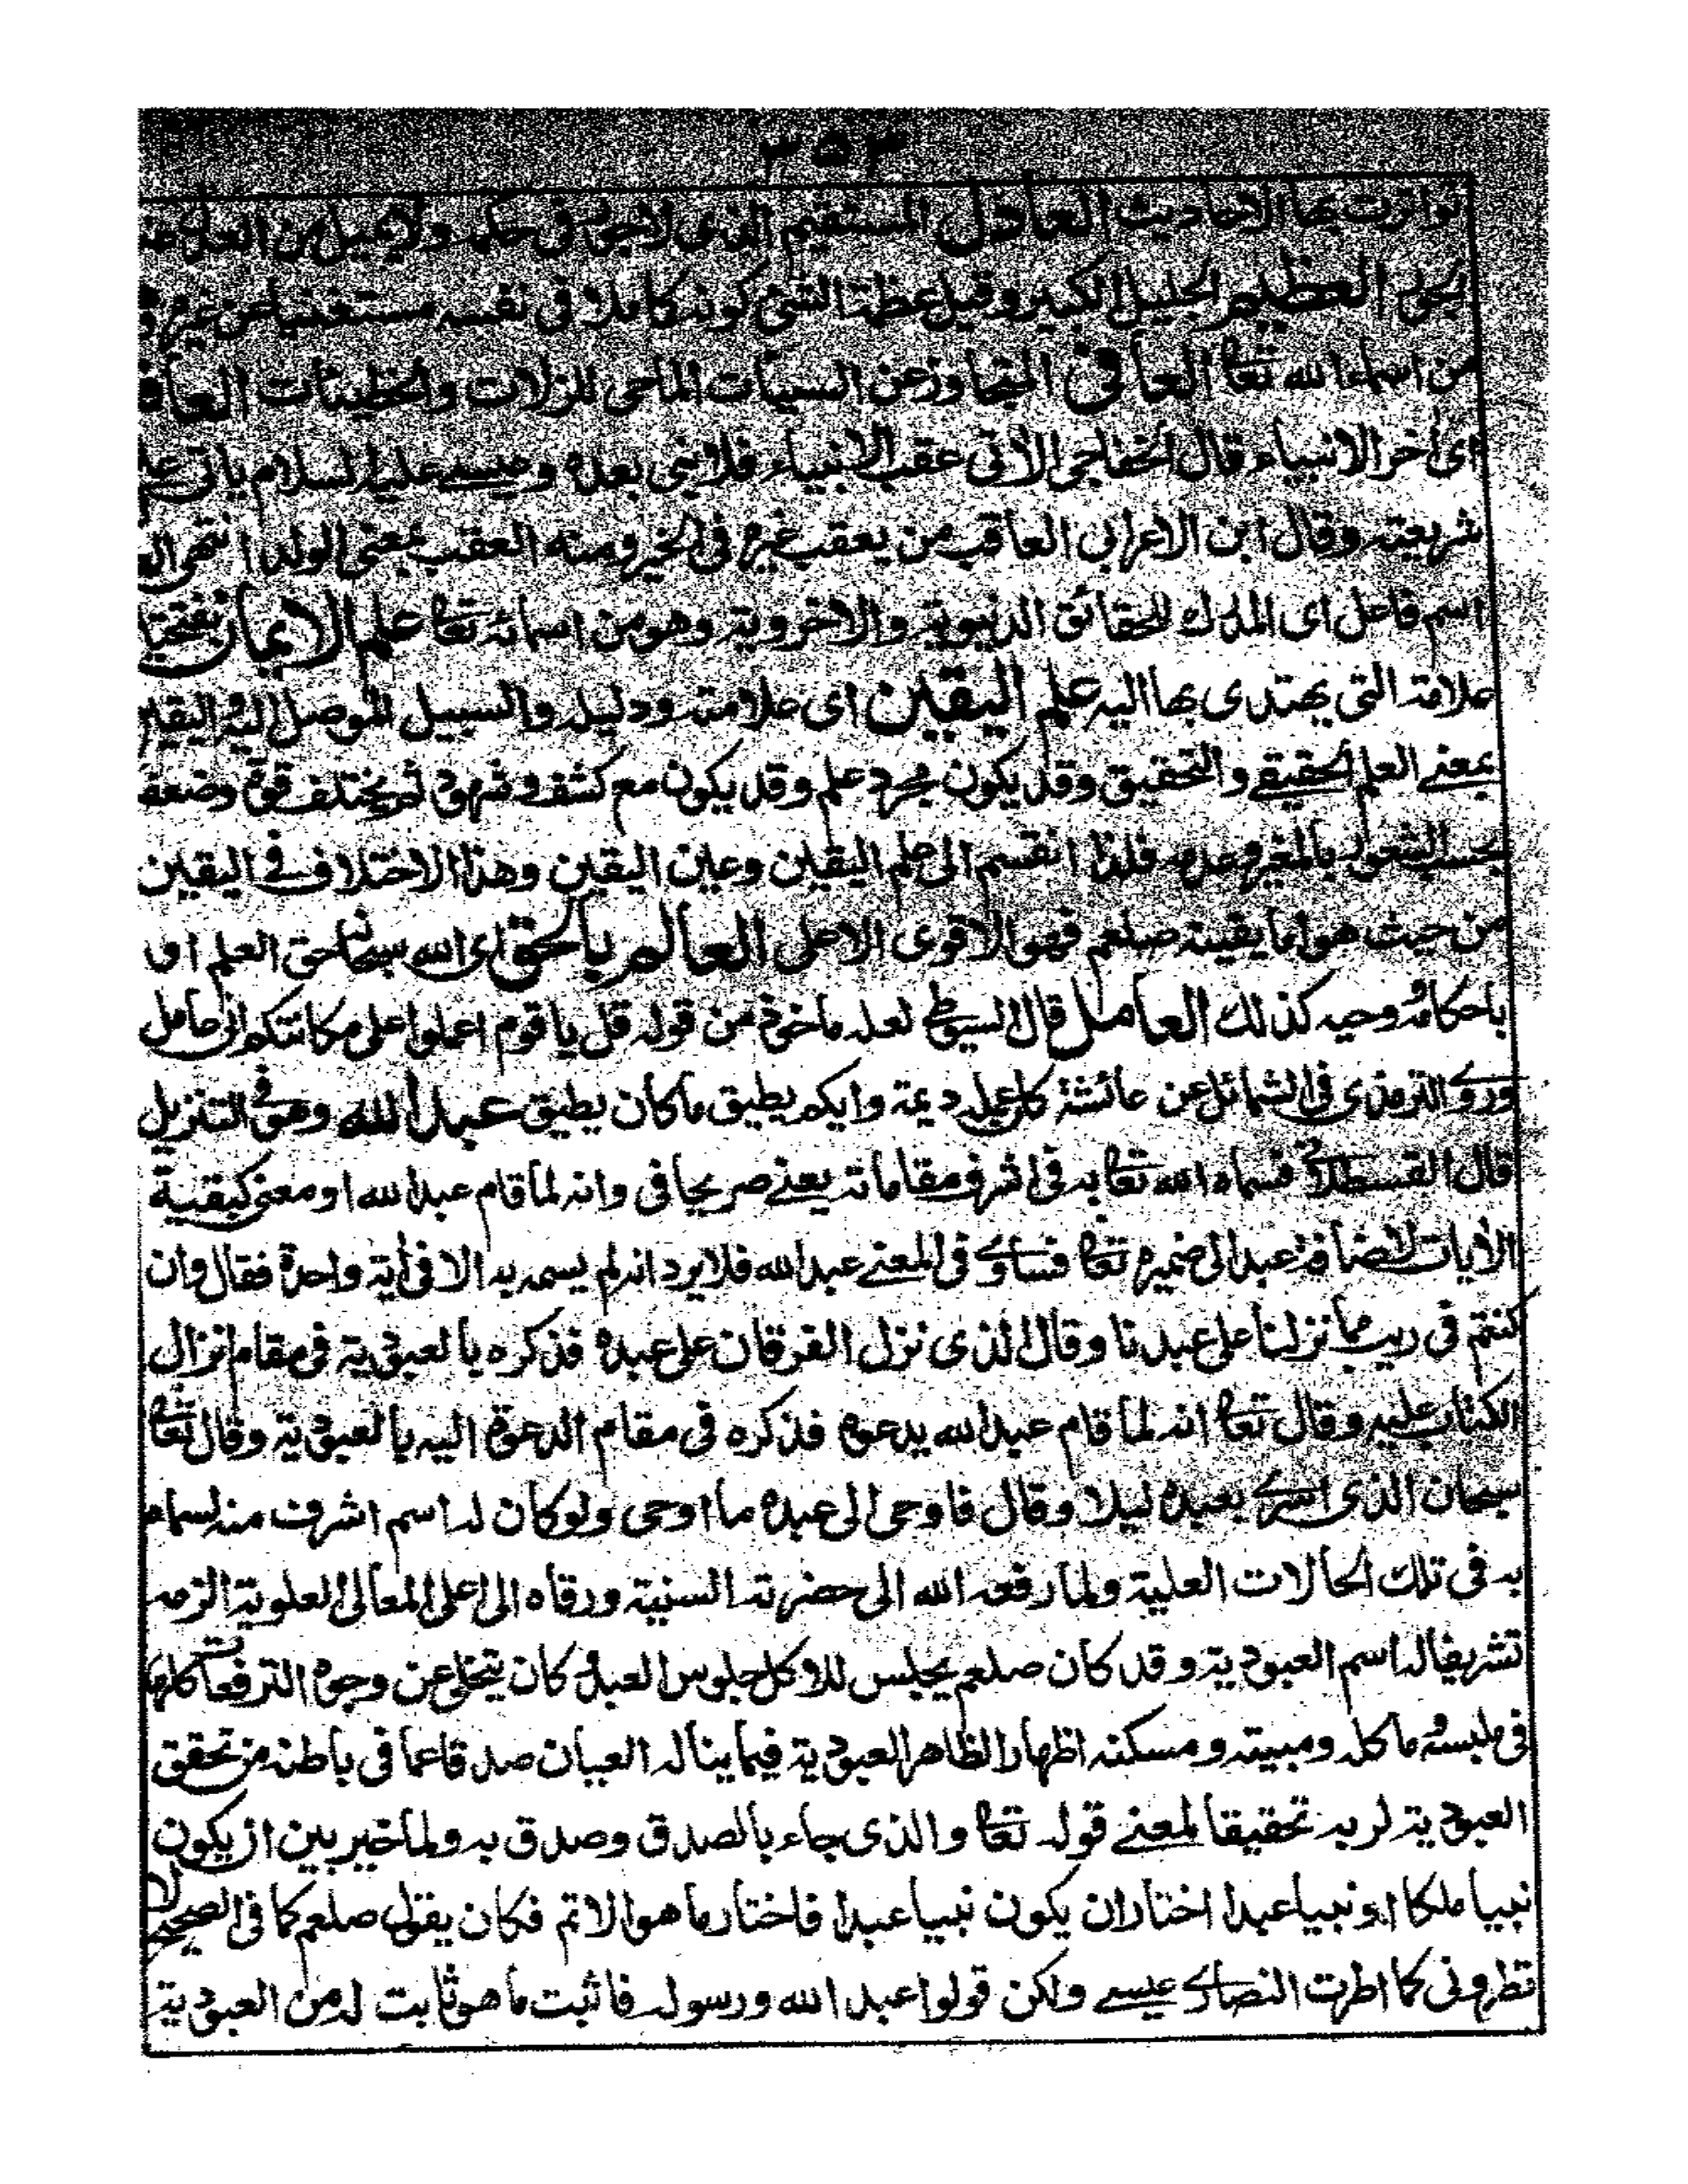 ٣٥٣
تواترت بها الاحاديث العادل المستقيم الذى لا جور فى حكمه ولا يميل من العدل
العظيم الجليل الكبير وقيل عظمة الشئ كونه كاملا فى نفسه مستغنيا عن غيره
من اسماء الله تعا العافى المتجاوز عن السيأت الماحى للزلات والخطيئات
اى أخر الانبياء قال الخفاجى الأتى عقب الانبياء فلا نبى بعده وعيسے عليه السلام ياتى
شريعته وقال ابن الاعرابي العاقب من يعقب غيره فى الخير ومنه العقب بمعنى الولد انتهى
اسم فاعل اى المدرك للحقائق الدنيوية والاخروية وهو من اسمائه تعا علم الايمان
علامته التى يهتدى بها اليه علم اليقين اى علامته ودليله والسبيل الموصل اليه
بمعنے العلم الحقيقے والتحقيق وقد يكون مجرد علم وقد يكون مع كشف وشهود ثم يختلف قوة وضعفا
بحسب فلذا انقسم الى علم اليقين وعين اليقين وهذا الاختلاف فے اليقين
من حيث هو اما يقينه صلعم فهو الاقوى الاعلى العالم بالحق اى الله سبحانه حق العلم اى
باحكامه وحيه كذلك العامل قال السيوطے لعله ماخوذ من قوله قل يا قوم اعملوا على مكانتكم انى عامل
وروے الترمذى فى الشمائل عن عائشة كان عمله ديمة وايكم يطيق ما كان يطيق عبد الله وهو فے التنزيل
قال القسطلانے فسماه الله تعا به فى اشرف مقاماته يعنے صريحا فى وانه لما قام عبد الله او معنى كبقية
الأيات لاضافة عبد الى ضميره تعا فتساوے فى المعنے عبد الله فلا يرد انه لم يسمه به الا فى أية واحدة فقال وان
كنتم فى ريب مما نزلنا على عبدنا وقال الذى نزل الفرقان على عبده فذكره بالعبودية فى مقام انزال
الكتاب عليه وقال تعا انه لما قام عبد الله يدعوه فذكره فى مقام الدعوة اليه بالعبودية وقال تعا
سبحان الذى اسرے بعبده ليلا وقال فاوحى الى عبده ما اوحى ولو كان له اسم اشرف منه لسماه
به فى تلك الحالات العلية ولما رفعه الله الى حضرته السنية ورقاه الى اعلى المعالى العلوية الزمه
تشريفا له اسم العبودية وقد كان صلعم يجلس للاكل جلوس العبد وكان يتخلى عن وجوه الترفعات كلها
فى ملبسه وماكله ومبيته ومسكنه اظهارا لظاهر العبودية فيما يناله العيان صدقا عما فى باطنه من تحقق
العبودية لربه تحقيقا لمعنے قوله تعا والذى جاء بالصدق وصدق به ولما خير بين ان يكون
نبيا ملكا او نبيا عبدا اختار ان يكون نبيا عبدا فاختار ما هو الاتم فكان يقول صلعم كما فى الصحيح لا
تطرونى كما اطرت النصارے عيسے ولكن قولوا عبد الله ورسوله فاثبت ما هو ثابت له من العبودية